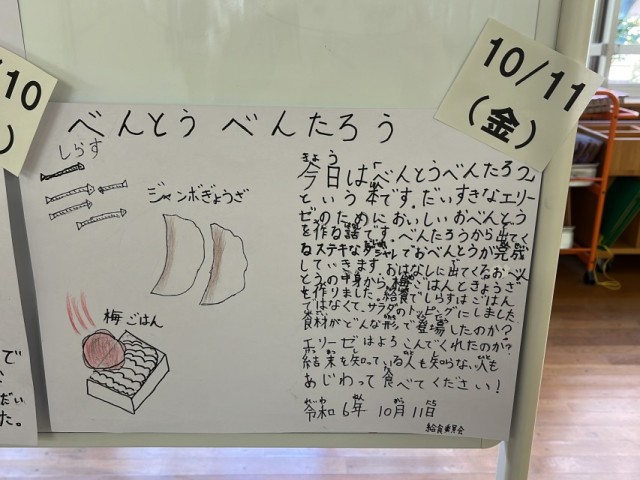 10
10/11
(金)
べんとう べんたろう
しらす
ジャンボぎょうざ
梅ごはん
今日は「べんとうべんたろう」
という本です。だいすきなエリー
ゼのためにおいしいおべんとう
を作る話です。べんたろうから出てく
るステキなダシャレでおべんとうが完成
していきます。おはなしに出てくるおべん
とうの中身から、梅ごはんとぎょうざ
を作りました。給食でしらすはごはん
ではなくて、サラダのトッピングにしました
食材がどんな形で登場したのか?
エリーゼはよろこんでくれたのか?
結末を知っている人も知らない人も
あじわって食べてください!
令和6年 10月11日
給食委員会
で
だい
た。